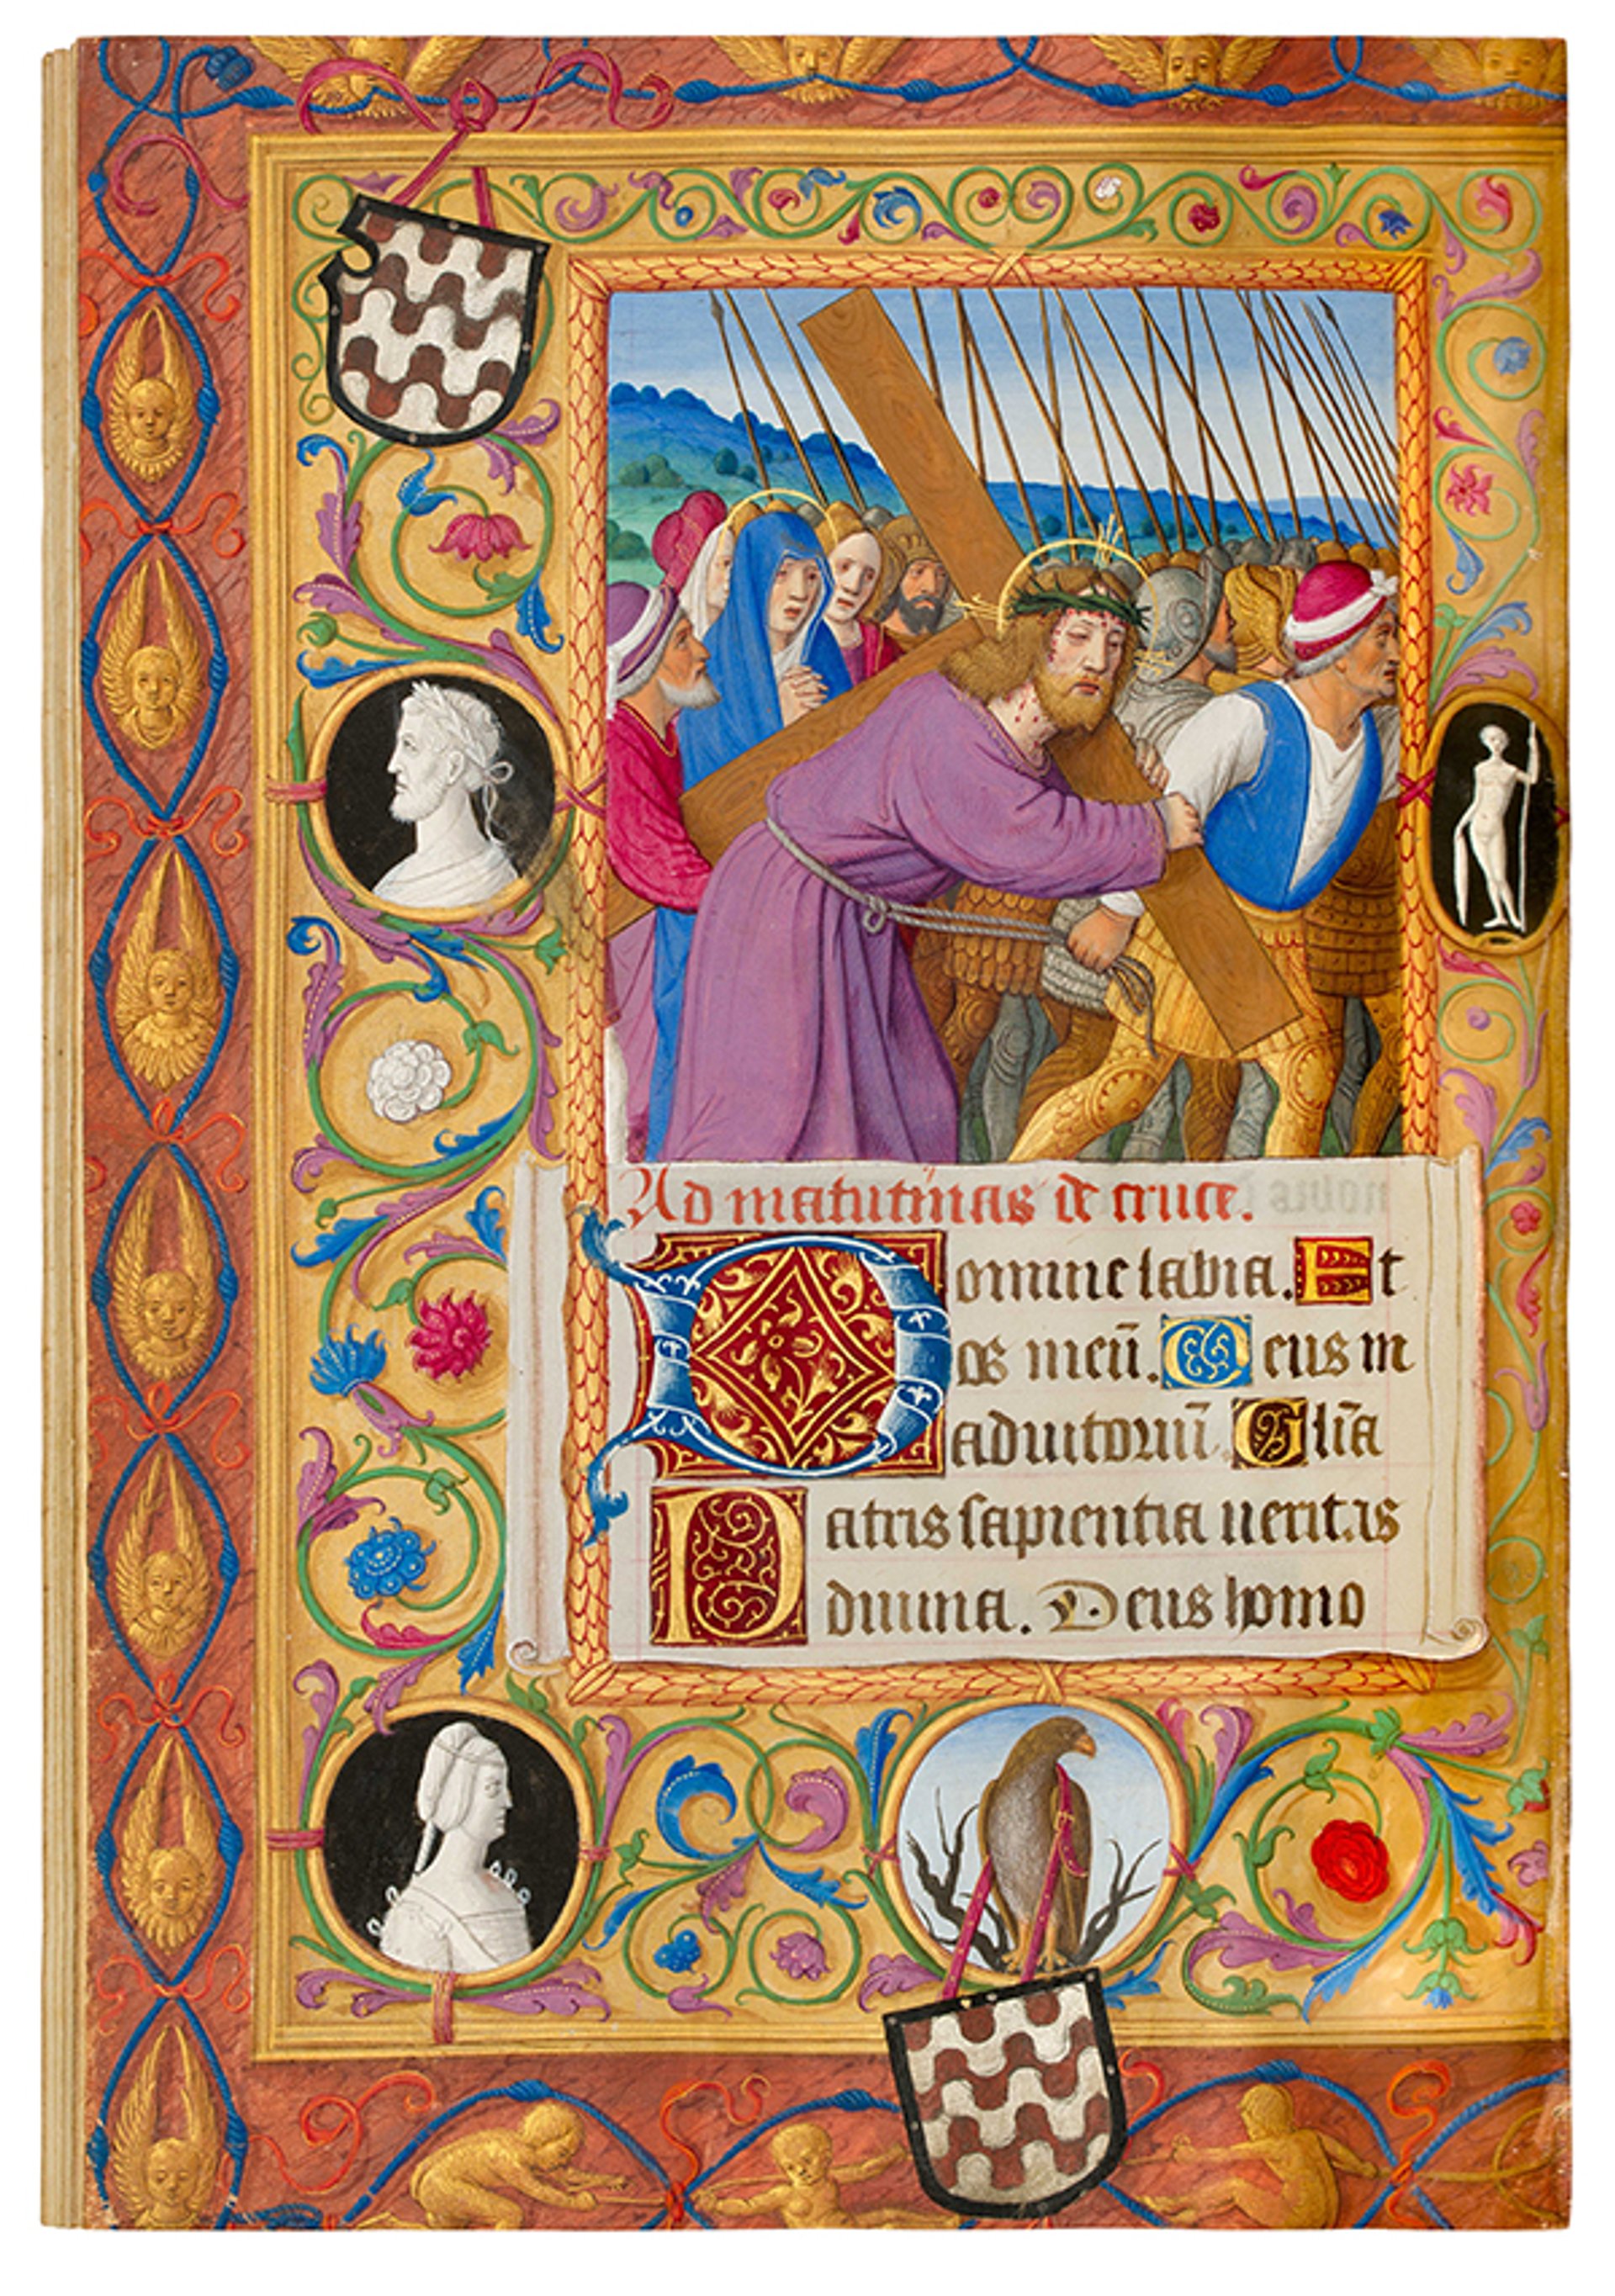 Ad matutinas de cruce.
Domine labia. Et
os meū. Deus in
adiutoriū. Glīa
Patris sapientia veritas
divina. Deus homo